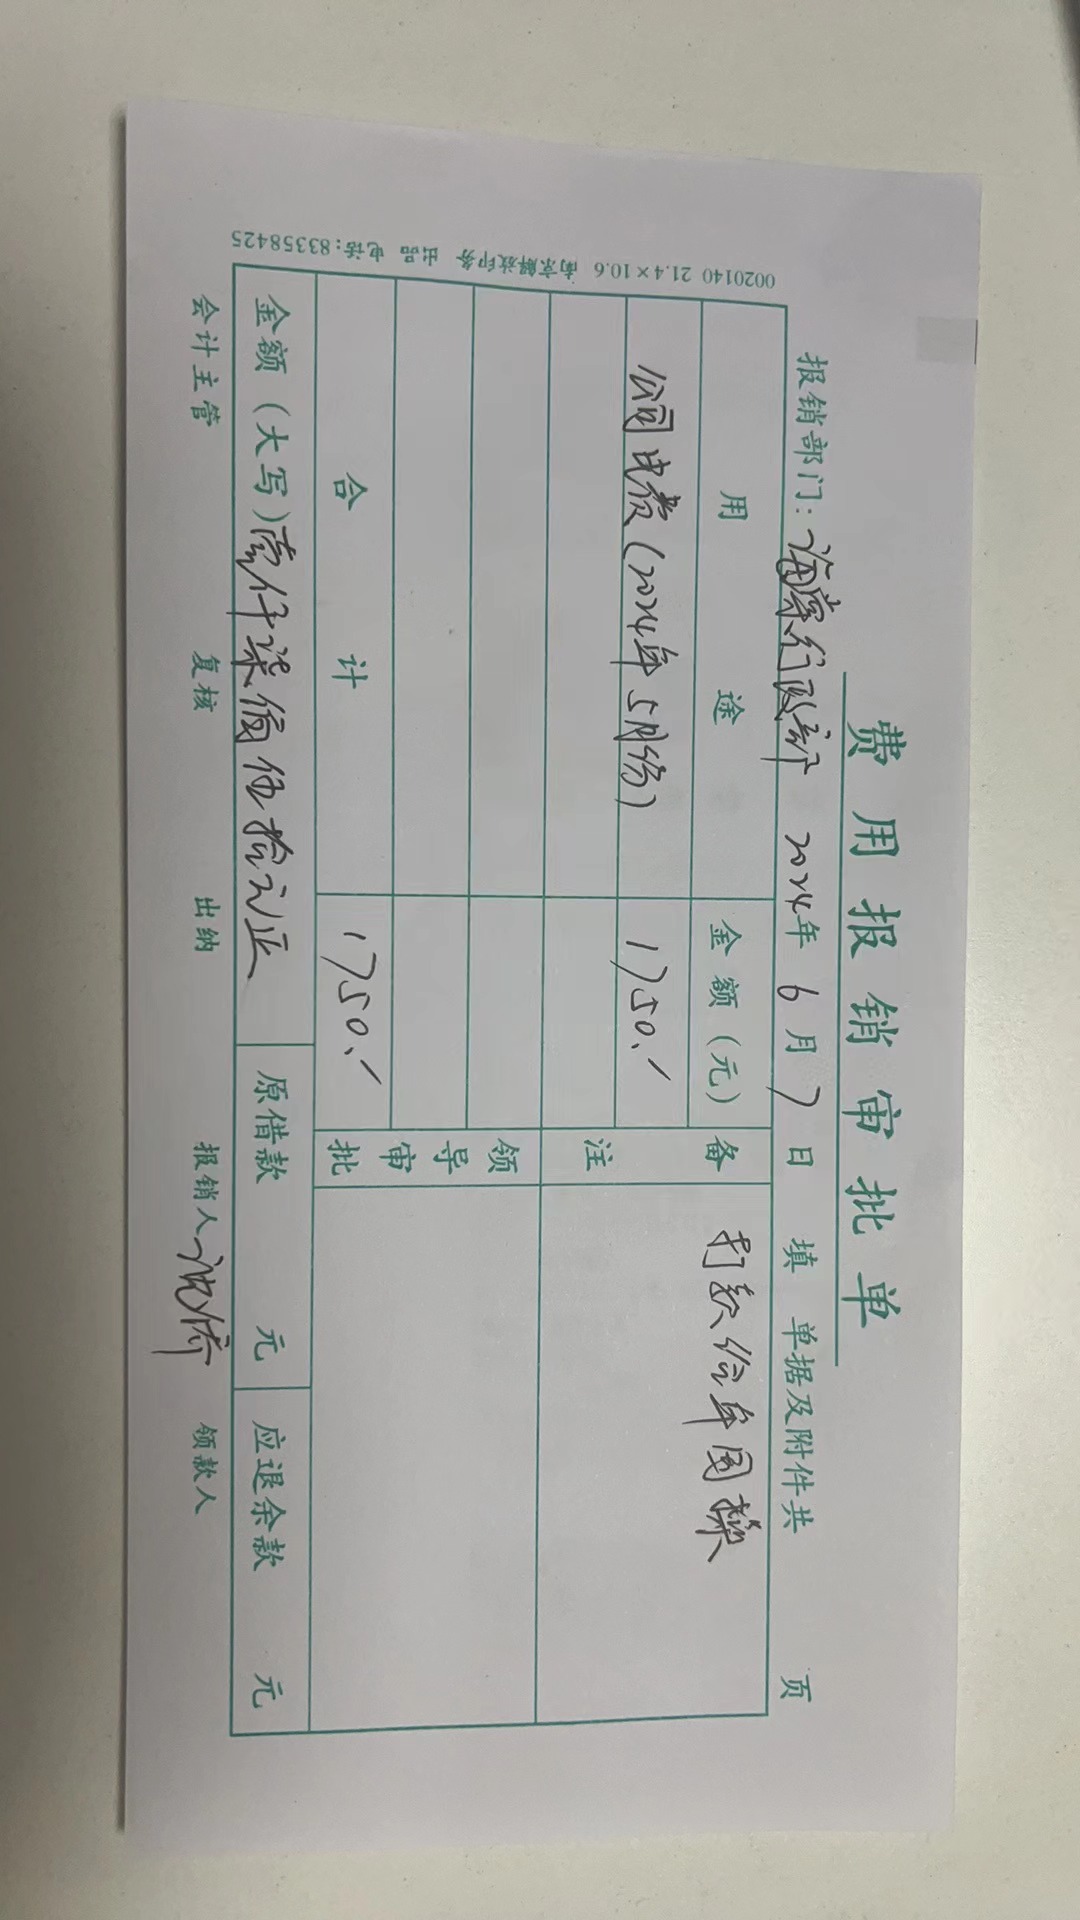 费用报销审批单
报销部门：海宁行政部 2024年 6月 7日 填 单据及附件共 页
用途 金额（元） 备注 打款给车国樑
公司电费（2024年5月份） 1750.
领导审批
合计 1750.
金额（大写）壹仟柒佰伍拾元正 原借款 元 应退余款 元
会计主管 复核 出纳 报销人 沈侨 领款人
0020140 21.4×10.6 南京解放印务 出品 电话：83358425